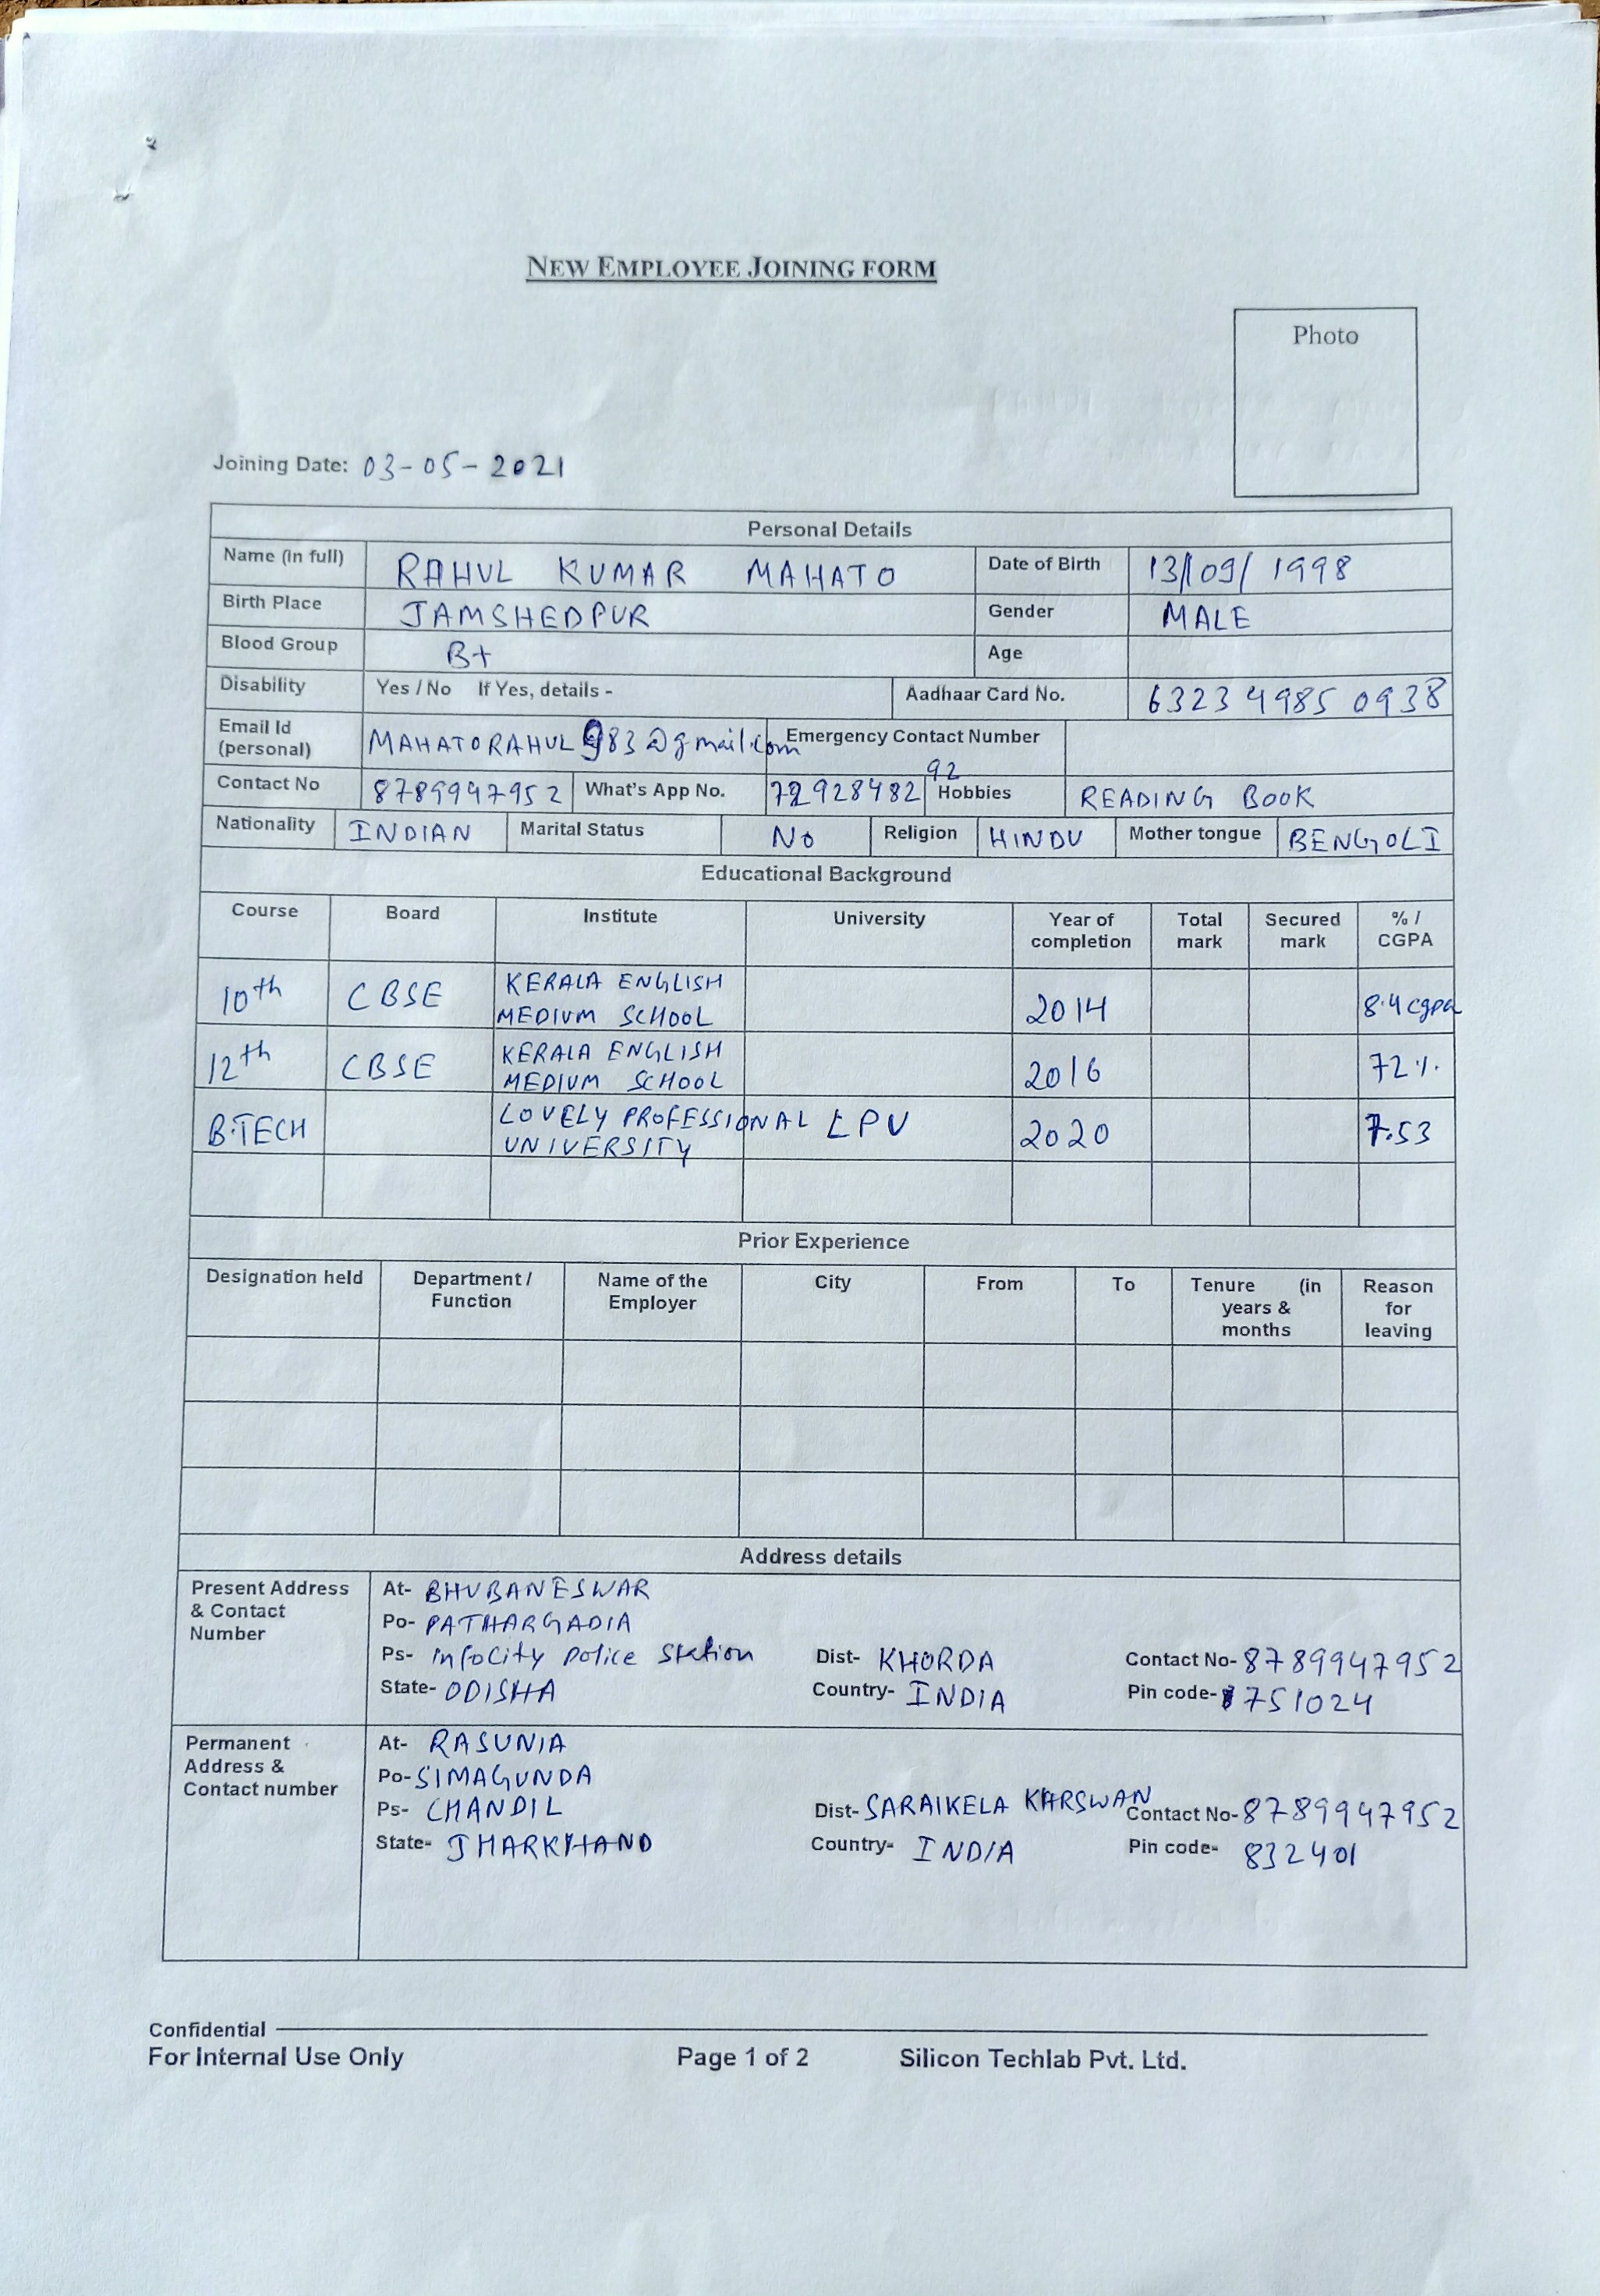 NEW EMPLOYEE JOINING FORM
Photo
Joining Date: 03-05-2021
Personal Details
Name (in full) RAHUL KUMAR MAHATO Date of Birth 13/09/1998
Birth Place JAMSHEDPUR Gender MALE
Blood Group B+ Age
Disability Yes / No If Yes, details - Aadhaar Card No. 6323 4985 0938
Email Id (personal) MAHATORAHUL983@gmail.com Emergency Contact Number
Contact No 8789947952 What's App No. 7292848292 Hobbies READING BOOK
Nationality INDIAN Marital Status NO Religion HINDU Mother tongue BENGOLI
Educational Background
Course Board Institute University Year of completion Total mark Secured mark % / CGPA
10th CBSE KERALA ENGLISH MEDIUM SCHOOL 2014 8.4 cgpa
12th CBSE KERALA ENGLISH MEDIUM SCHOOL 2016 72%
B.TECH LOVELY PROFESSIONAL UNIVERSITY LPU 2020 7.53
Prior Experience
Designation held Department / Function Name of the Employer City From To Tenure (in years & months Reason for leaving
Address details
Present Address & Contact Number
At- BHUBANESWAR
Po- PATHARGADIA
Ps- infocity police station Dist- KHORDA Contact No- 8789947952
State- ODISHA Country- INDIA Pin code- 751024
Permanent Address & Contact number
At- RASUNIA
Po- SIMAGUNDA
Ps- CHANDIL Dist- SARAIKELA KHARSWAN Contact No- 8789947952
State- JHARKHAND Country- INDIA Pin code- 832401
Confidential
For Internal Use Only Page 1 of 2 Silicon Techlab Pvt. Ltd.